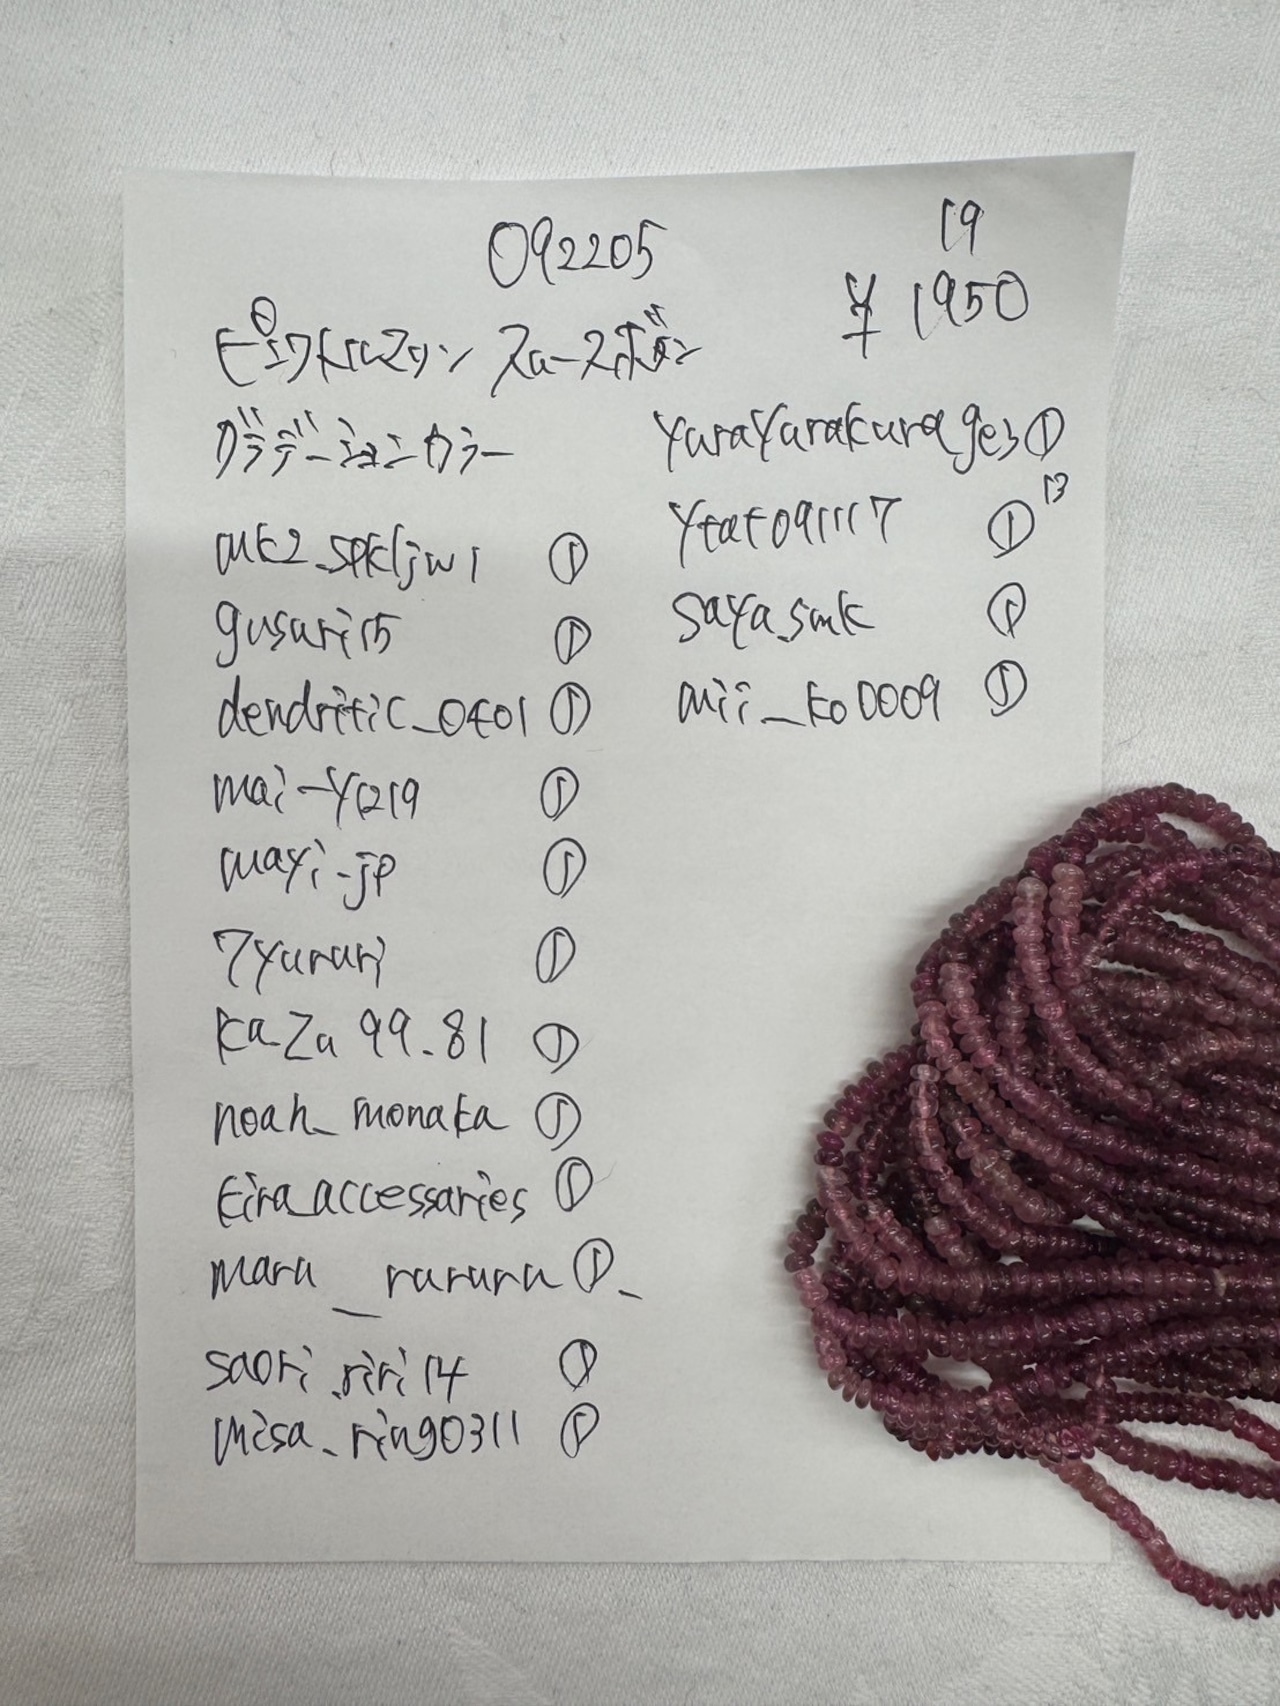 092205
19
¥ 1950
ピンクトルマリン スムースボタン
グラデーションカラー
mk2_spkljw1 ①
gusari15 ①
dendritic_0401 ①
mai-y1219 ①
mayi-jp ①
7yururi ①
kaza99.81 ①
noah_monaka ①
kira_accessaries ①
maru__rururu①_
saori.riri14 ①
misa_ring0311 ①
yurayurakurage3①
ytat091117 ① 13
saya.smk ①
mii_ko0009 ①